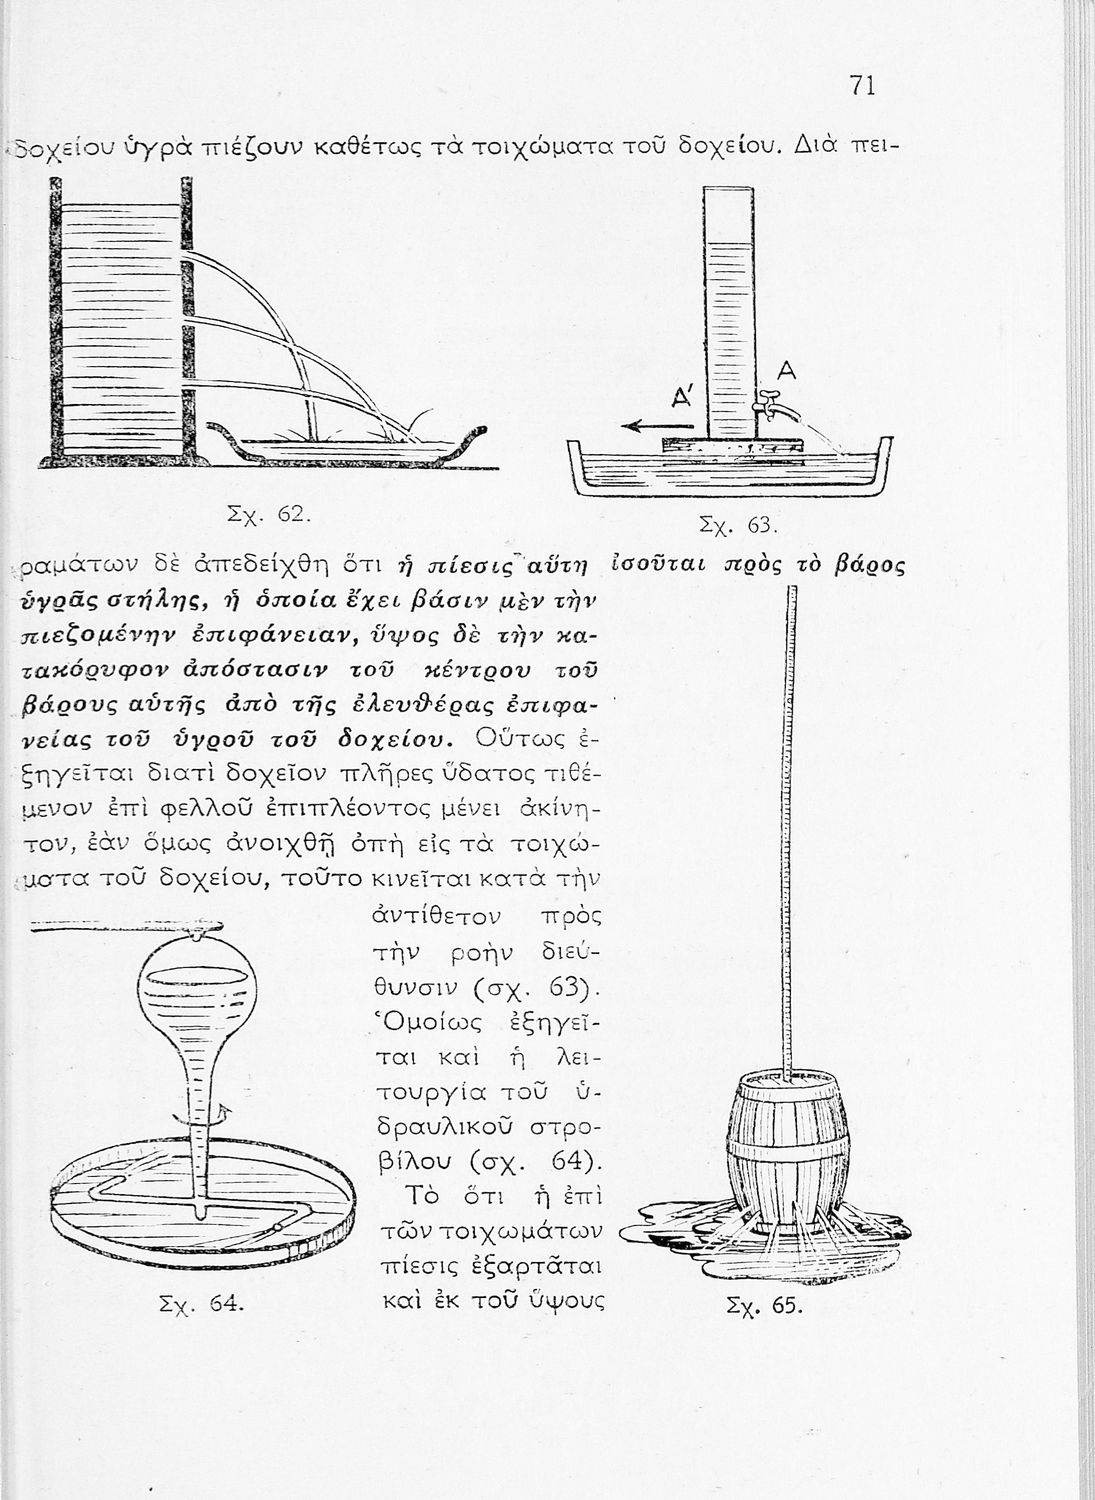 71
δοχείου ὑγρὰ πιέζουν καθέτως τὰ τοιχώματα τοῦ δοχείου. Διὰ πει-
Α
Α′
Σχ. 62.
Σχ. 63.
ραμάτων δὲ ἀπεδείχθη ὅτι ἡ πίεσις αὕτη ἰσοῦται πρὸς τὸ βάρος
ὑγρᾶς στήλης, ἡ ὁποία ἔχει βάσιν μὲν τὴν
πιεζομένην ἐπιφάνειαν, ὕψος δὲ τὴν κα-
τακόρυφον ἀπόστασιν τοῦ κέντρου τοῦ
βάρους αὐτῆς ἀπὸ τῆς ἐλευθέρας ἐπιφα-
νείας τοῦ ὑγροῦ τοῦ δοχείου. Οὕτως ἐ-
ξηγεῖται διατὶ δοχεῖον πλῆρες ὕδατος τιθέ-
μενον ἐπὶ φελλοῦ ἐπιπλέοντος μένει ἀκίνη-
τον, ἐὰν ὅμως ἀνοιχθῇ ὀπὴ εἰς τὰ τοιχώ-
ματα τοῦ δοχείου, τοῦτο κινεῖται κατὰ τὴν
ἀντίθετον πρὸς
τὴν ροὴν διεύ-
θυνσιν (σχ. 63).
Ὁμοίως ἐξηγεῖ-
ται καὶ ἡ λει-
τουργία τοῦ ὑ-
δραυλικοῦ στρο-
βίλου (σχ. 64).
Τὸ ὅτι ἡ ἐπὶ
τῶν τοιχωμάτων
πίεσις ἐξαρτᾶται
καὶ ἐκ τοῦ ὕψους
Σχ. 64.
Σχ. 65.